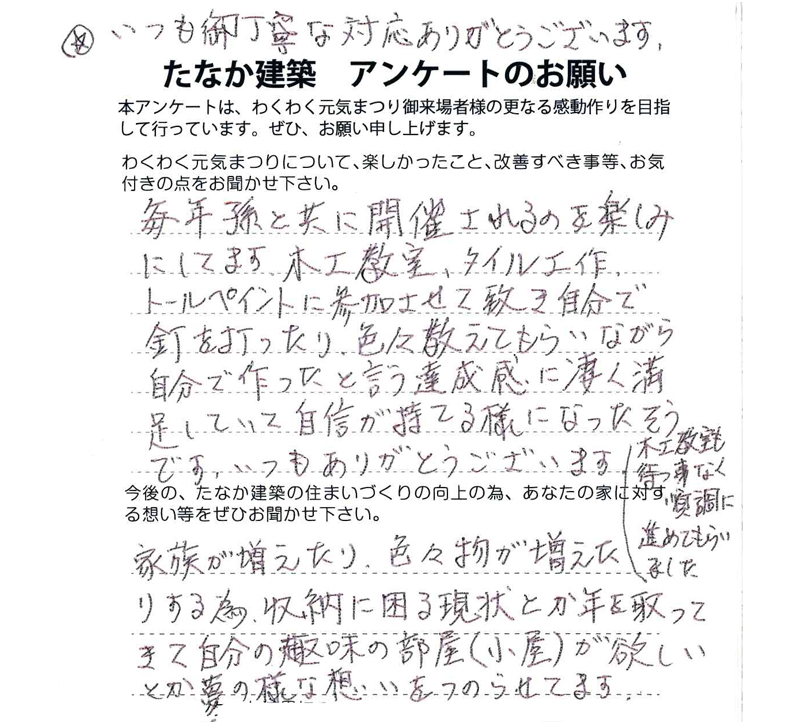 いつも御丁寧な対応ありがとうございます。
たなか建築 アンケートのお願い
本アンケートは、わくわく元気まつり御来場者様の更なる感動作りを目指
して行っています。ぜひ、お願い申し上げます。
わくわく元気まつりについて、楽しかったこと、改善すべき事等、お気
付きの点をお聞かせ下さい。
毎年孫と共に開催されるのを楽しみ
にしてます。木工教室、タイル工作、
トールペイントに参加させて致き自分で
釘を打ったり、色々教えてもらいながら
自分で作ったと言う達成感に凄く満
足していて自信が持てる様になったそう
です。いつもありがとうございます。
木工教室も
待つ事なく
順調に
進めてもらい
ました
今後の、たなか建築の住まいづくりの向上の為、あなたの家に対す
る想い等をぜひお聞かせ下さい。
家族が増えたり、色々物が増えた
りする為、収納に困る現状とか年を取って
きて自分の趣味の部屋(小屋)が欲しい
とか夢の様な想いをつのらせてます。